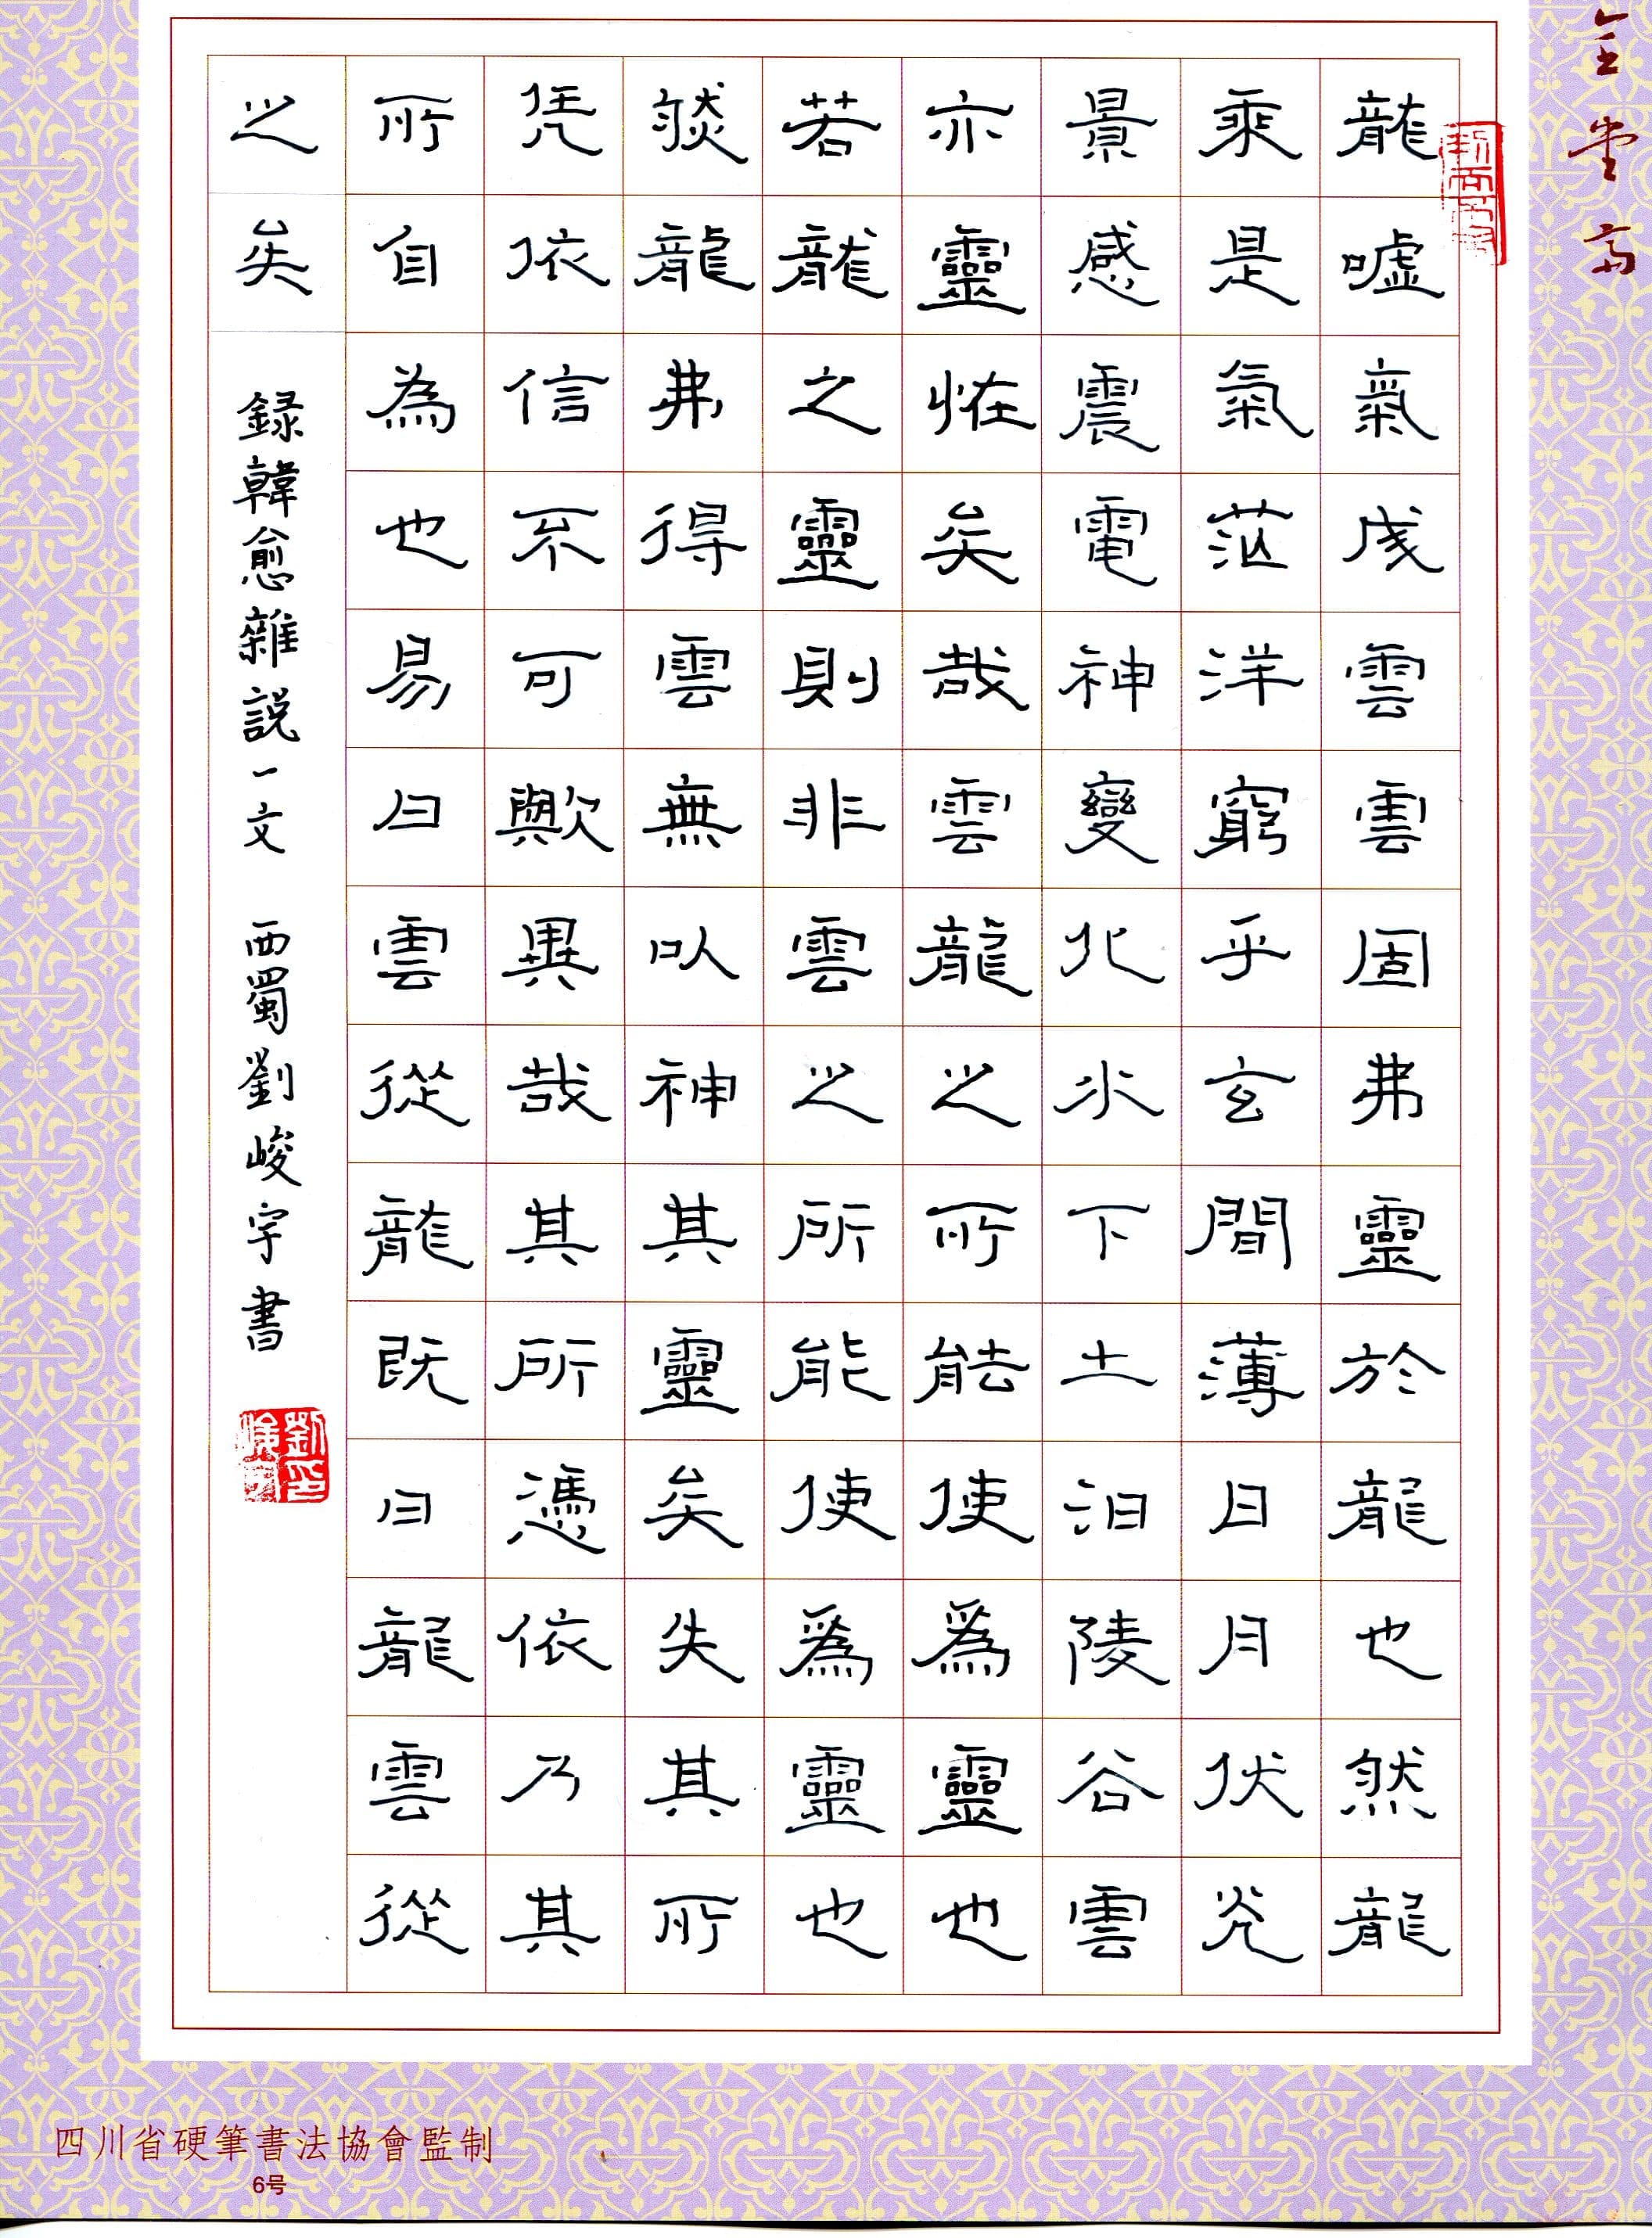 龍嘘氣成雲雲固弗靈於龍也然龍
乘是氣茫洋窮乎玄間薄日月伏光
景感震電神變化水下土汩陵谷雲
亦靈恠矣哉雲龍之所能使為靈也
若龍之靈則非雲之所能使為靈也
然龍弗得雲無以神其靈矣失其所
凭依信不可歟異哉其所憑依乃其
所自為也易曰雲從龍既曰龍雲從
之矣
録韓愈雜説一文 西蜀劉峻宇書
四川省硬筆書法協會監制
6号